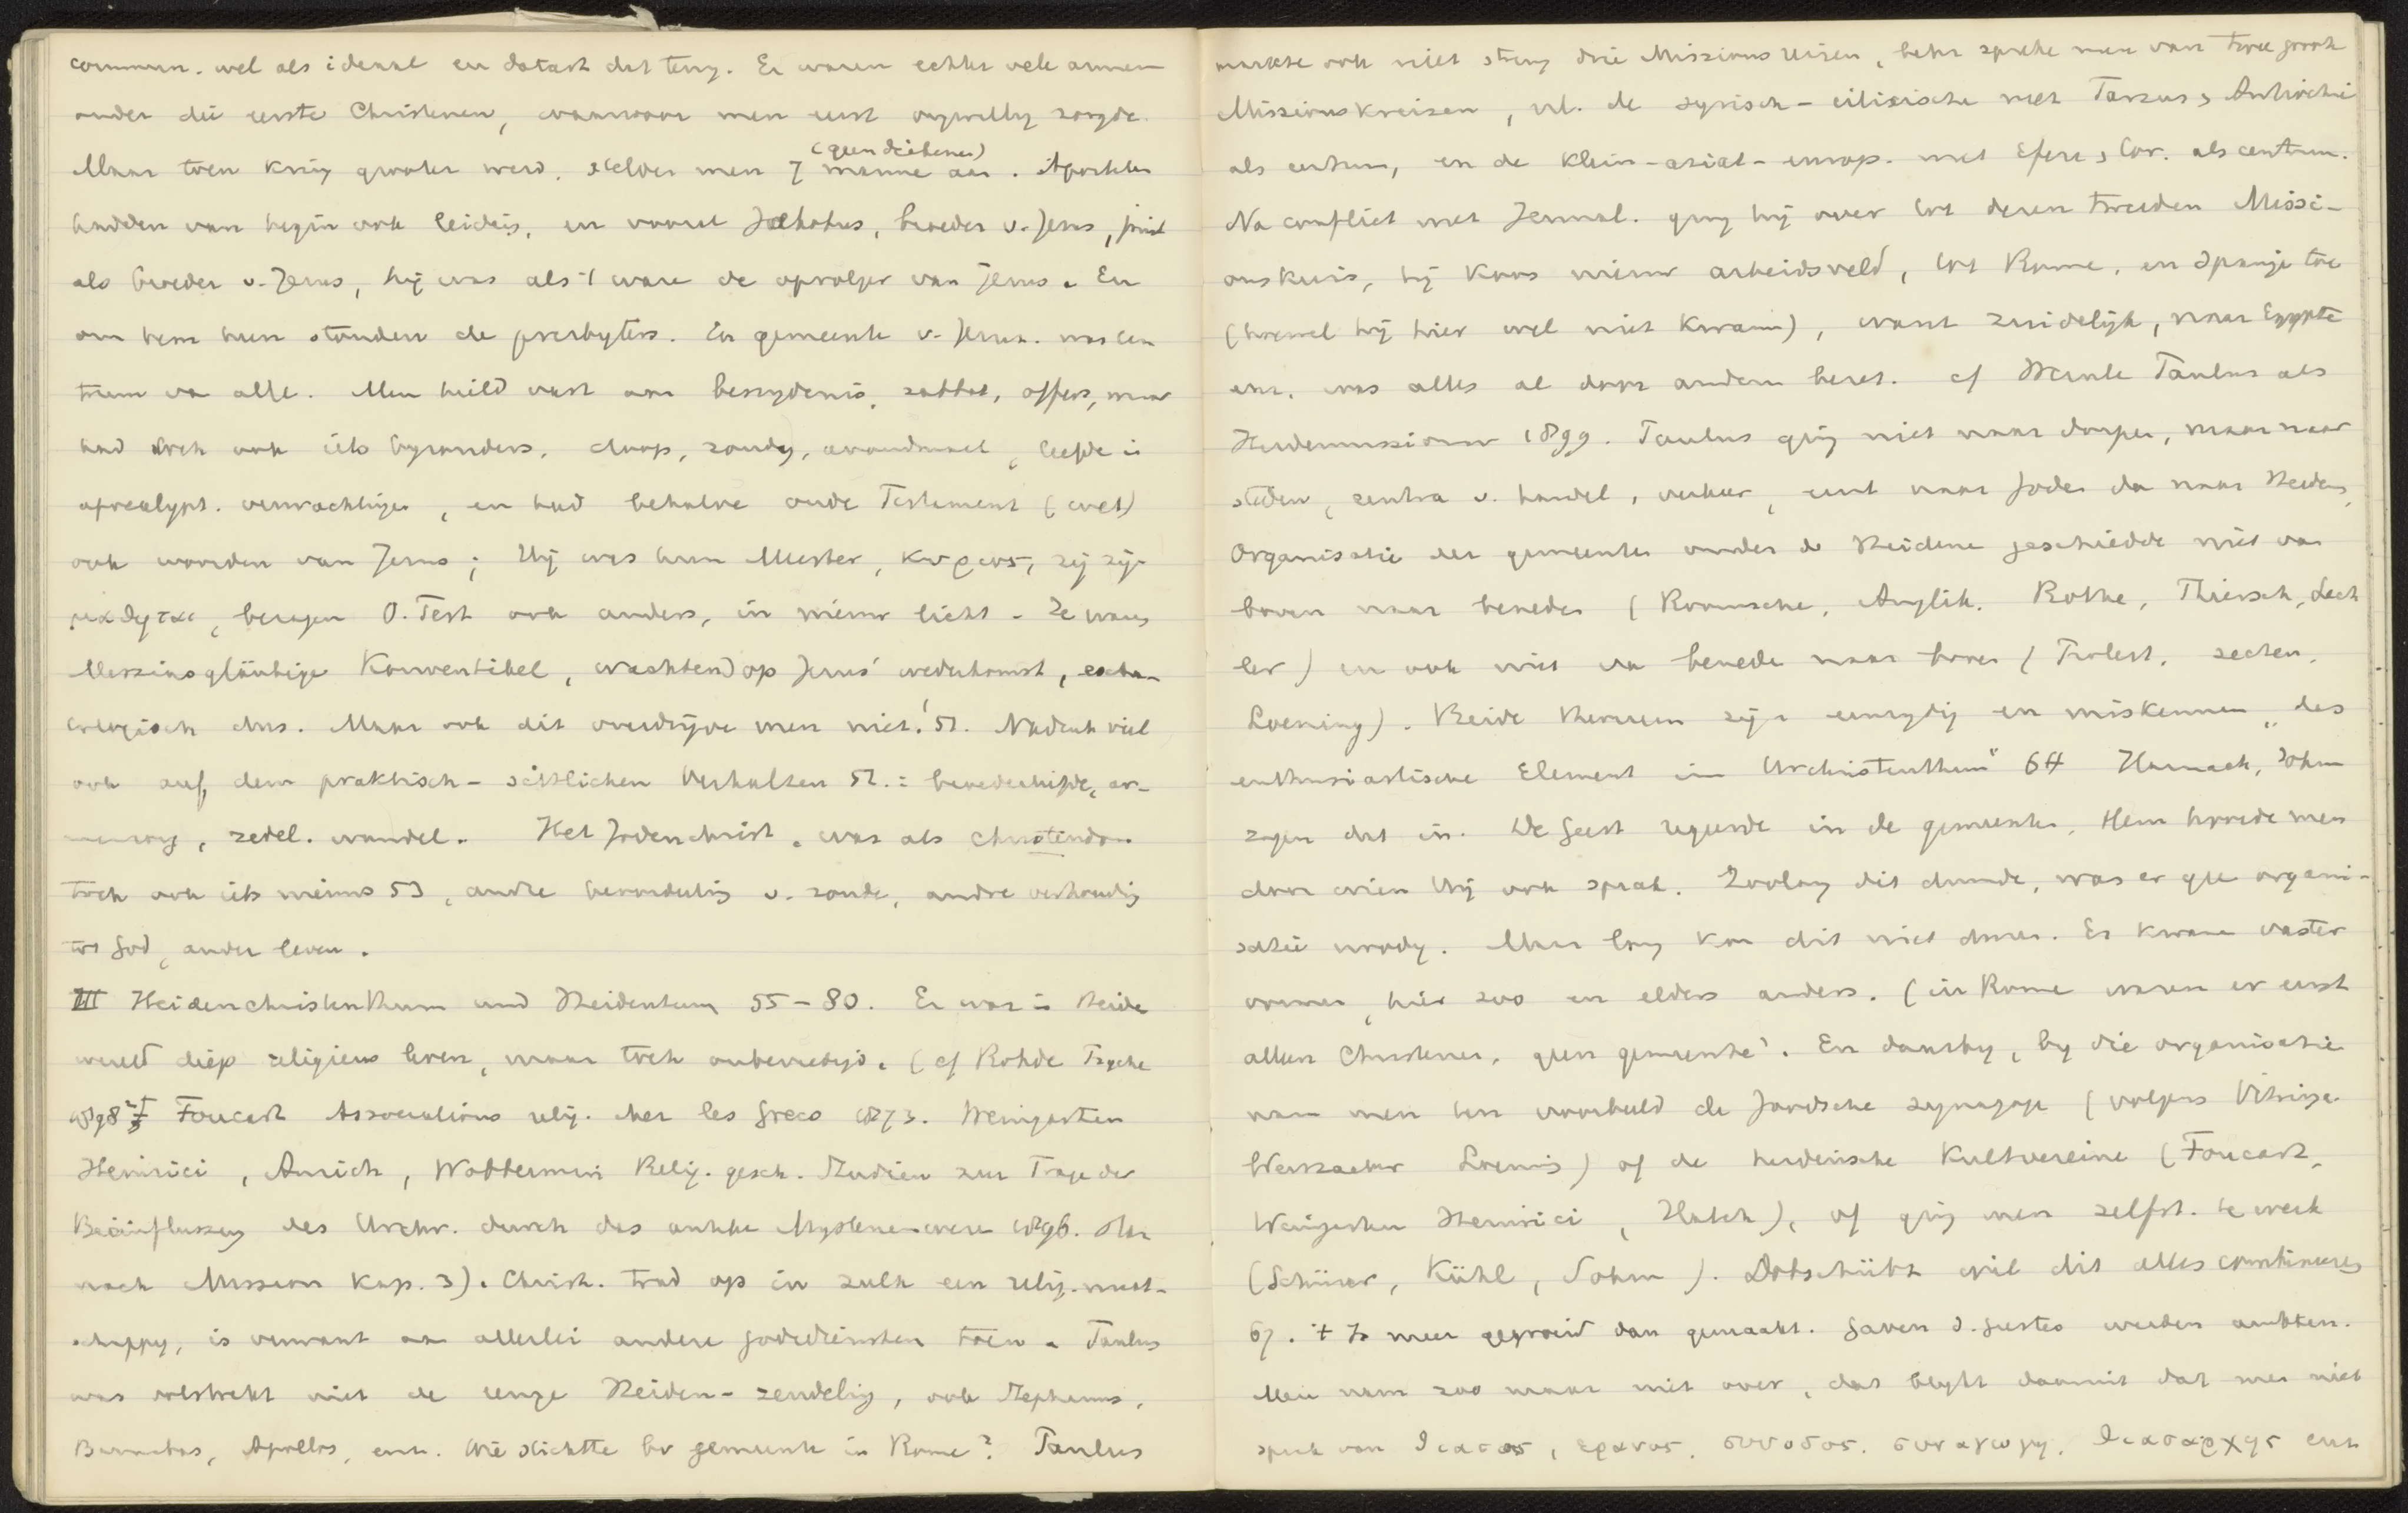 commun. wel als ideaal en datart dat terug. Er waren echter vele armen
onder die eerste Christenen, waarvoor men eerst vrywillig zorgde.
Maar toen kring grooter werd, stelden men 7 manne aan. Apostelen
(geen diakenen)
hadden van begin ook leiding, en vooral Jakobus, broeder v. Jezus, juist
als broeder v. Jezus, hij was als 't ware de opvolger van Jezus. En
om hem heen stonden de presbyters. En gemeente v. Jeruz. was cen
trum va alle. Men hield vast aan besnydenis, sabbat, offers, maar
had toch ook iets byzonders, doop, zondag, avondmaal, liefde in
apocalypt. verwachtingen, en had behalve oude Testament (wet)
ook woorden van Jezus; Hij was hun Meester, κυριος, zij zijn
μαθηται, bezagen O. Test ook anders, in nieuw licht - Ze waren
Messiasgläubige Konventikel, wachtend op Jezus' wederkomst, escha-
tologisch dus. Maar ook dit overdrijve men niet! 51. Nadruk viel
ook auf dem praktisch-sittlichen Verhalten 52.: broederliefde, ar-
menzorg, zedel. wandel. Het Jodenchrist. was als christendom
toch ook iets nieuws 53, andre beoordeeling v. zonde, andre verhouding
tot God, ander leven.
III Heidenchristenthum und Heidentum 55-80. Er was in Heiden
wereld diep religieus leven, maar toch onbevredigd. (cf Rohde Psyche
1898² Foucart Associations relig. chez les Grecs 1873. Weingarten
Heinrici, Anrich, Wobbermin Relig. gesch. Studien zur Frage der
Beeinflussung des Urchr. durch das antike Mysterienwesen 1896.
nach Mission Kap. 3). Christ. trad op in zulk een relig. maat-
schappy, is verwant aan allerlei andere godsdiensten toen. Paulus
was volstrekt niet de eenige Heiden-zendeling, ook Stephanus,
Barnabas, Apollos, enz. Wie stichtte bv gemeente in Rome? Paulus
maakte ook niet streng drie Missionsreisen, beter spreke men van twee groote
Missionskreisen, nl. de syrisch-cilicische met Tarsus & Antiochie
als centrum, en de klein-asiat-europ. met Efeze & Cor. als centrum.
Na conflict met Jeruzal. ging hij over tot dezen tweeden Missi-
onskreis, hij koos nieuw arbeidsveld, tot Rome, en Spanje toe
(hoewel hij hier wel niet kwam), want zuidelijk, naar Egypte
enz. was alles al door andere bezet. cf Wernle Paulus als
Heidenmissionar 1899. Paulus ging niet naar dorpen, maar naar
steden, centra v. handel, verkeer, eerst naar Joden dan naar Heiden.
Organisatie der gemeenten onder de Heidene geschiedde niet van
boven naar beneden (Roomsche, Anglik. Rothe, Thiersch, Lech
ler) en ook niet van beneden naar boven (Protest. secten,
Loening). Beide theorieen zijn eenzydig en miskennen „das
enthusiastische Element im Urchristenthum" 64 Harnack, Sohm
zagen dat in. De Geest regeerde in de gemeenten, Hem hoorde men
door wien Hij ook sprak. Zoolang dit duurde, was er gee organi-
satie noodig. Maar lang kon dit niet duren. Er kwam vaster
vormen, hier zoo en elders anders. (in Rome waren er eerst
alleen Christenen, geen gemeente). En daarby, by die organisatie
nam men ten voorbeeld de Joodsche synagoge (volgens Vitringa
Weizsäcker Loening) of de heidensche Kultvereine (Foucart,
Weingarten Heinrici, Hatch), of ging men zelfst. te werk
(Schürer, Kühl, Sohm). Dobschütz wil dit alles combineeren
67. 't Is meer gegroeid dan gemaakt. Gaven d. Geestes werden ambten.
Men nam zoo maar niet over, dat blykt daaruit dat men niet
sprak van θιασος, ερανος, συνοδος, συναγωγη, θιασαρχης enz